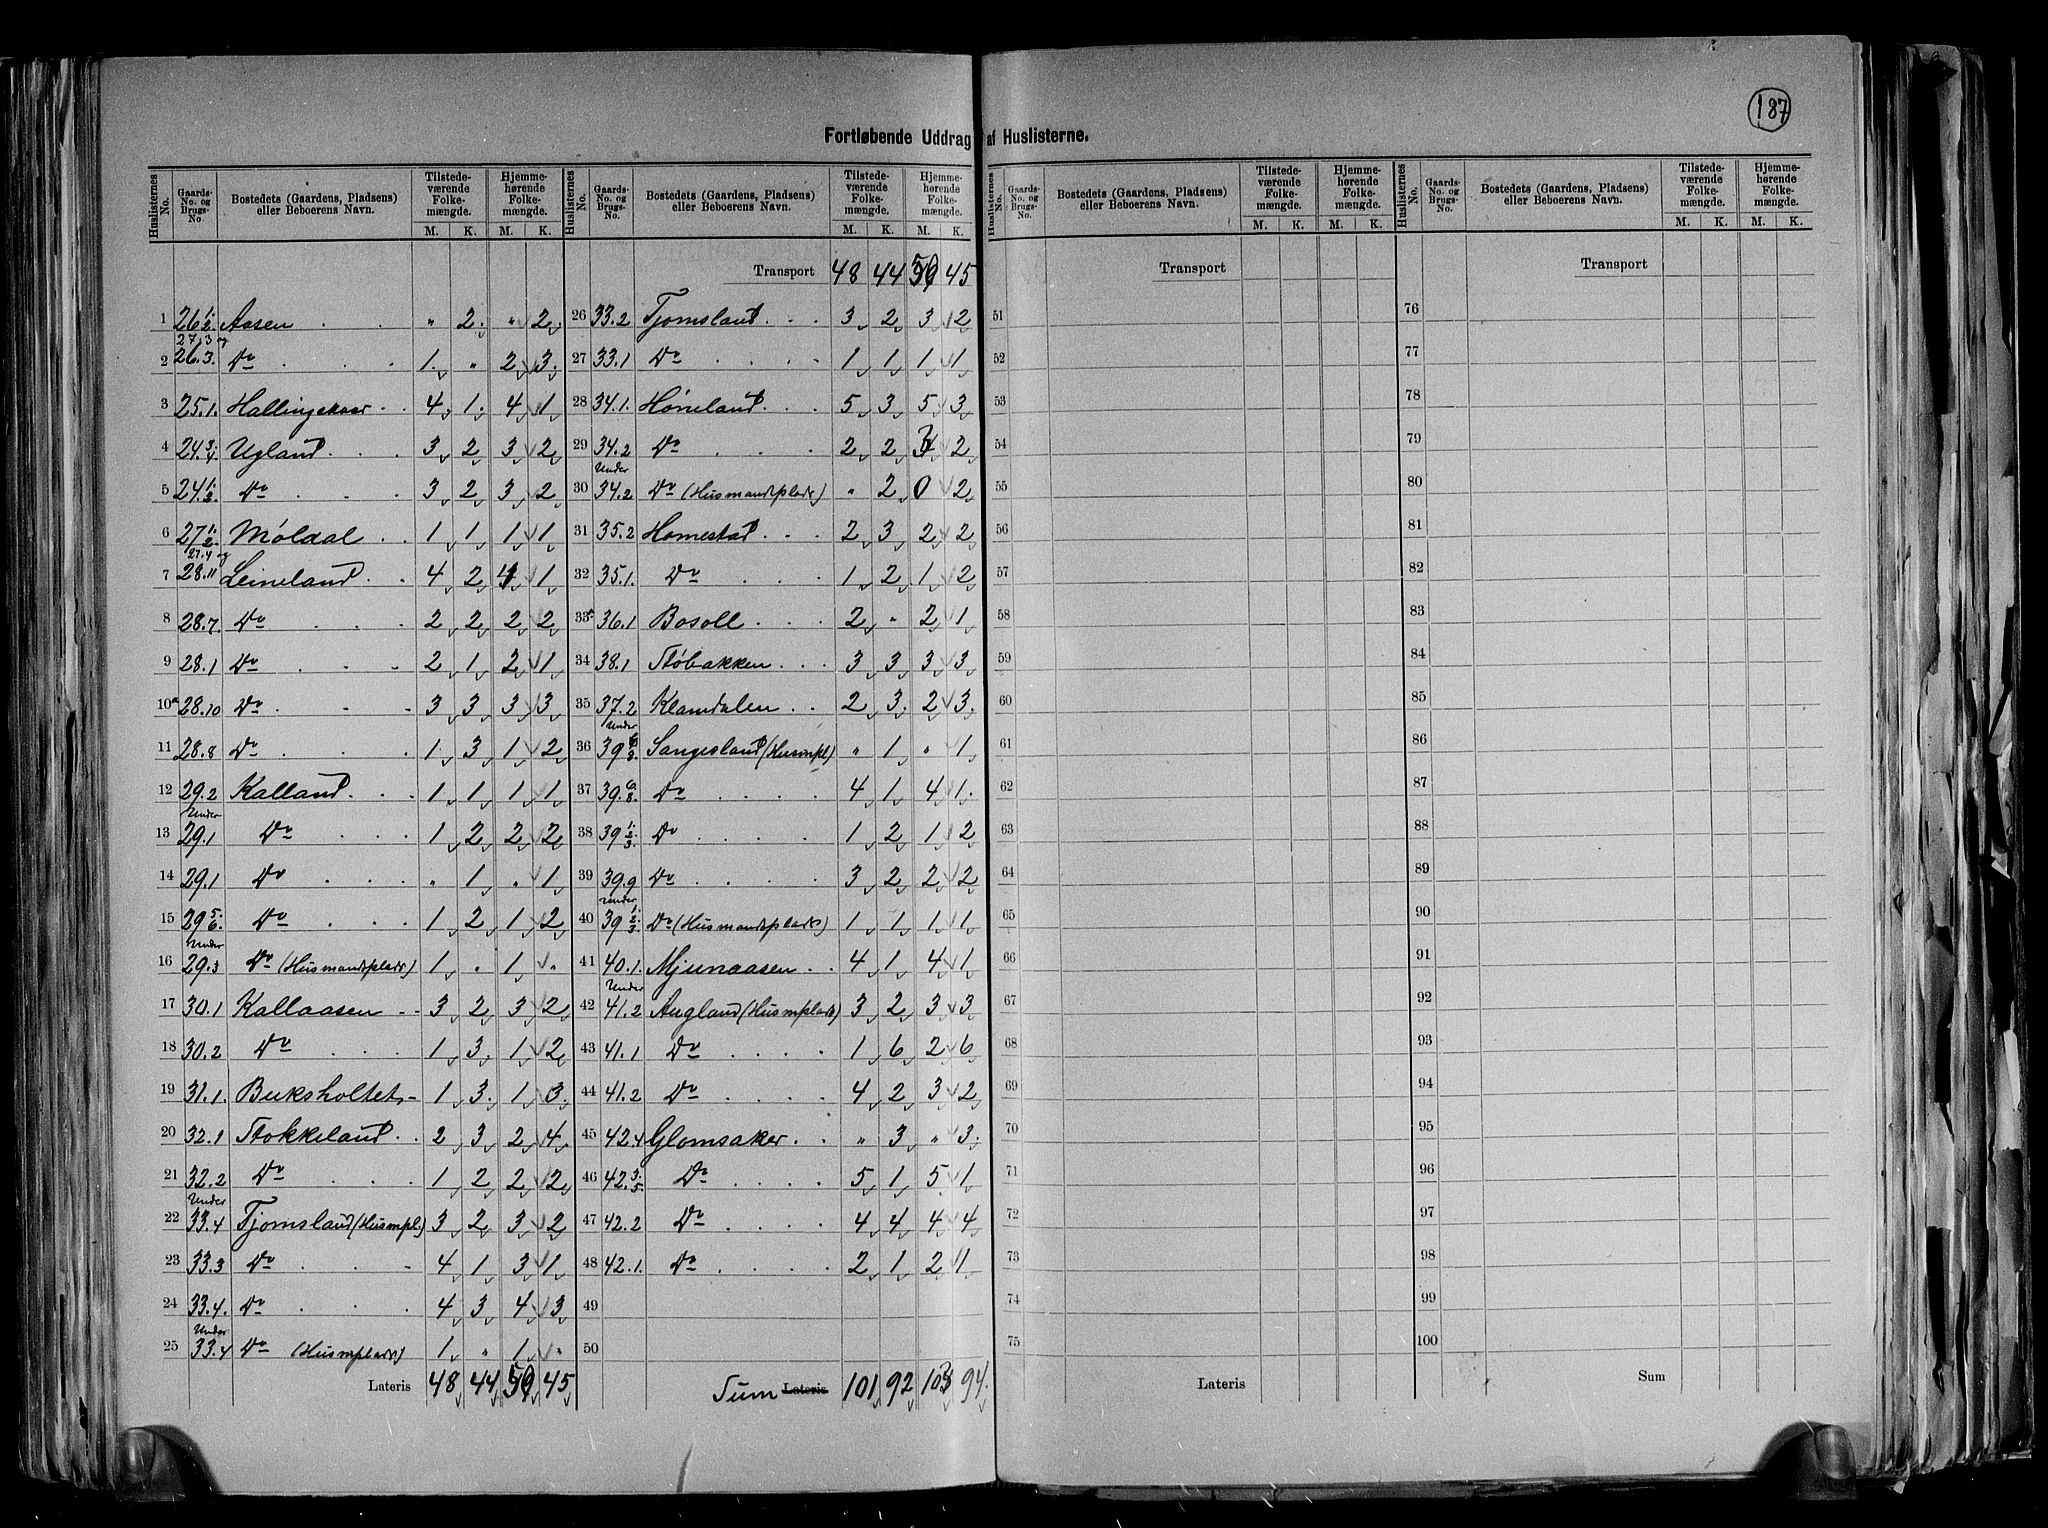 187
Fortløbende Uddrag af Huslisterne.
Huslisternes No. | Gaards-No. og Brugs-No. | Bostedets (Gaardens, Pladsens) eller Beboerens Navn. | Tilstedeværende Folkemængde. M. K. | Hjemmehørende Folkemængde. M. K.
1 26 1. 2. Aasen " 2 " 2
2 27.3 og 26.3. Do 1 " 2 3
3 25.1. Hallingskaar 4 1 4 1
4 24.3. 4 Ugland 3 2 3 2
5 24 1. 2 Do 3 2 3 2
6 27 1. 2. Møldal 1 1 1 1
7 27.4 og 28.11 Leineland 4 2 4 1
8 28.7. Do 2 2 2 2
9 28.1 Do 2 1 2 1
10 28.10 Do 3 3 3 3
11 28.8 Do 1 3 1 2
12 29.2 Kalland 1 1 1 1
13 Under 29.1 Do 1 2 2 2
14 29.1 Do " 1 " 1
15 29 5. 6. Do 1 2 1 2
16 Under 29.3 Do (Husmandsplads) 1 " 1 "
17 30.1 Kallaasen 3 2 3 2
18 30.2 Do 1 3 1 2
19 31.1. Buksholtet 1 3 1 3
20 32.1 Stokkeland 2 3 2 4
21 32.2 Do 1 2 2 2
22 Under 33.4 Tjomsland (Husmpl.) 3 2 3 2
23 33.3 Do 4 1 3 1
24 33.4. Do 4 3 4 3
25 Under 33.4 Do (Husmplads) 1 " 1 "
Lateris 48 44 50 45
Huslisternes No. | Gaards-No. og Brugs-No. | Bostedets (Gaardens, Pladsens) eller Beboerens Navn. | Tilstedeværende Folkemængde. M. K. | Hjemmehørende Folkemængde. M. K.
Transport 48 44 50 45
26 33.2 Tjomsland 3 2 3 2
27 33.1 Do 1 1 1 1
28 34.1. Høneland 5 3 5 3
29 34.2 Do 2 2 3 2
30 Under 34.2 Do (Husmandsplads) " 2 0 2
31 35.2 Homestad 2 3 2 2
32 35.1. Do 1 2 1 2
33 36.1 Bosoll 2 " 2 1
34 38.1 Støbakken 3 3 3 3
35 37.2 Klamdalen 2 3 2 3
36 Under 39 Sangesland (Husmpl) " 1 " 1
37 39 6. 8. Do 4 1 4 1
38 39 1. 2. 3 Do 1 2 1 2
39 39.9 Do 3 2 2 2
40 Under 39 1. 2. 3 Do (Husmandsplads) 1 1 1 1
41 40.1. Mjunaasen 4 1 4 1
42 Under 41.2 Augland (Husmplads) 3 2 3 3
43 41.1 Do 1 6 2 6
44 41.2 Do 4 2 3 2
45 42.4 Glomsaker " 3 " 3
46 42.3. 5. Do 5 1 5 1
47 42.2 Do 4 4 4 4
48 42.1. Do 2 1 2 1
49
50
Sum Lateris 101 92 103 94.
Huslisternes No. | Gaards-No. og Brugs-No. | Bostedets (Gaardens, Pladsens) eller Beboerens Navn. | Tilstedeværende Folkemængde. M. K. | Hjemmehørende Folkemængde. M. K.
Transport
51
52
53
54
55
56
57
58
59
60
61
62
63
64
65
66
67
68
69
70
71
72
73
74
75
Lateris
Huslisternes No. | Gaards-No. og Brugs-No. | Bostedets (Gaardens, Pladsens) eller Beboerens Navn. | Tilstedeværende Folkemængde. M. K. | Hjemmehørende Folkemængde. M. K.
Transport
76
77
78
79
80
81
82
83
84
85
86
87
88
89
90
91
92
93
94
95
96
97
98
99
100
Sum